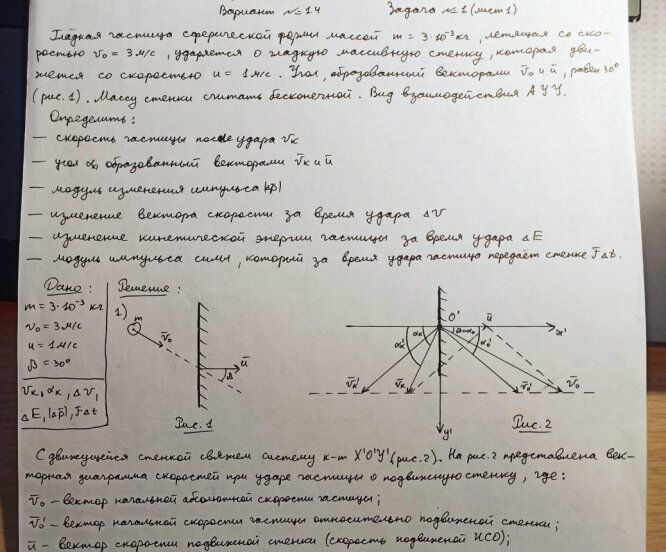 Вариант №14 Задача №1 (лист 1)
Гладкая частица сферической формы массой m = 3·10⁻³ кг, летящая со ско-
ростью v₀ = 3 м/с, ударяется о гладкую массивную стенку, которая дви-
жется со скоростью u = 1 м/с. Угол, образованный векторами v̄₀ и ū, равен 30°
(рис. 1). Массу стенки считать бесконечной. Вид взаимодействия АУУ.
Определить:
— скорость частицы после удара vₖ
— угол αₖ, образованный векторами v̄ₖ и ū
— модуль изменения импульса |Δp̄|
— изменение вектора скорости за время удара Δv̄
— изменение кинетической энергии частицы за время удара ΔE
— модуль импульса силы, который за время удара частица передаёт стенке FΔt.
Дано:
m = 3·10⁻³ кг
v₀ = 3 м/с
u = 1 м/с
β = 30°
vₖ, αₖ, Δv̄,
ΔE, |Δp̄|, FΔt
Решение:
1)
m
v̄₀
ū
β
Рис. 1
O' ū x'
αₖ αₖ' β=α₀ α₀'
v̄ₖ' v̄ₖ v̄₀' v̄₀
y'
Рис. 2
С движущейся стенкой свяжем систему к-т X'O'Y' (рис. 2). На рис. 2 представлена век-
торная диаграмма скоростей при ударе частицы о подвижную стенку, где:
v̄₀ – вектор начальной абсолютной скорости частицы;
v̄₀' – вектор начальной скорости частицы относительно подвижной стенки;
ū – вектор скорости подвижной стенки (скорость подвижной ИСО);